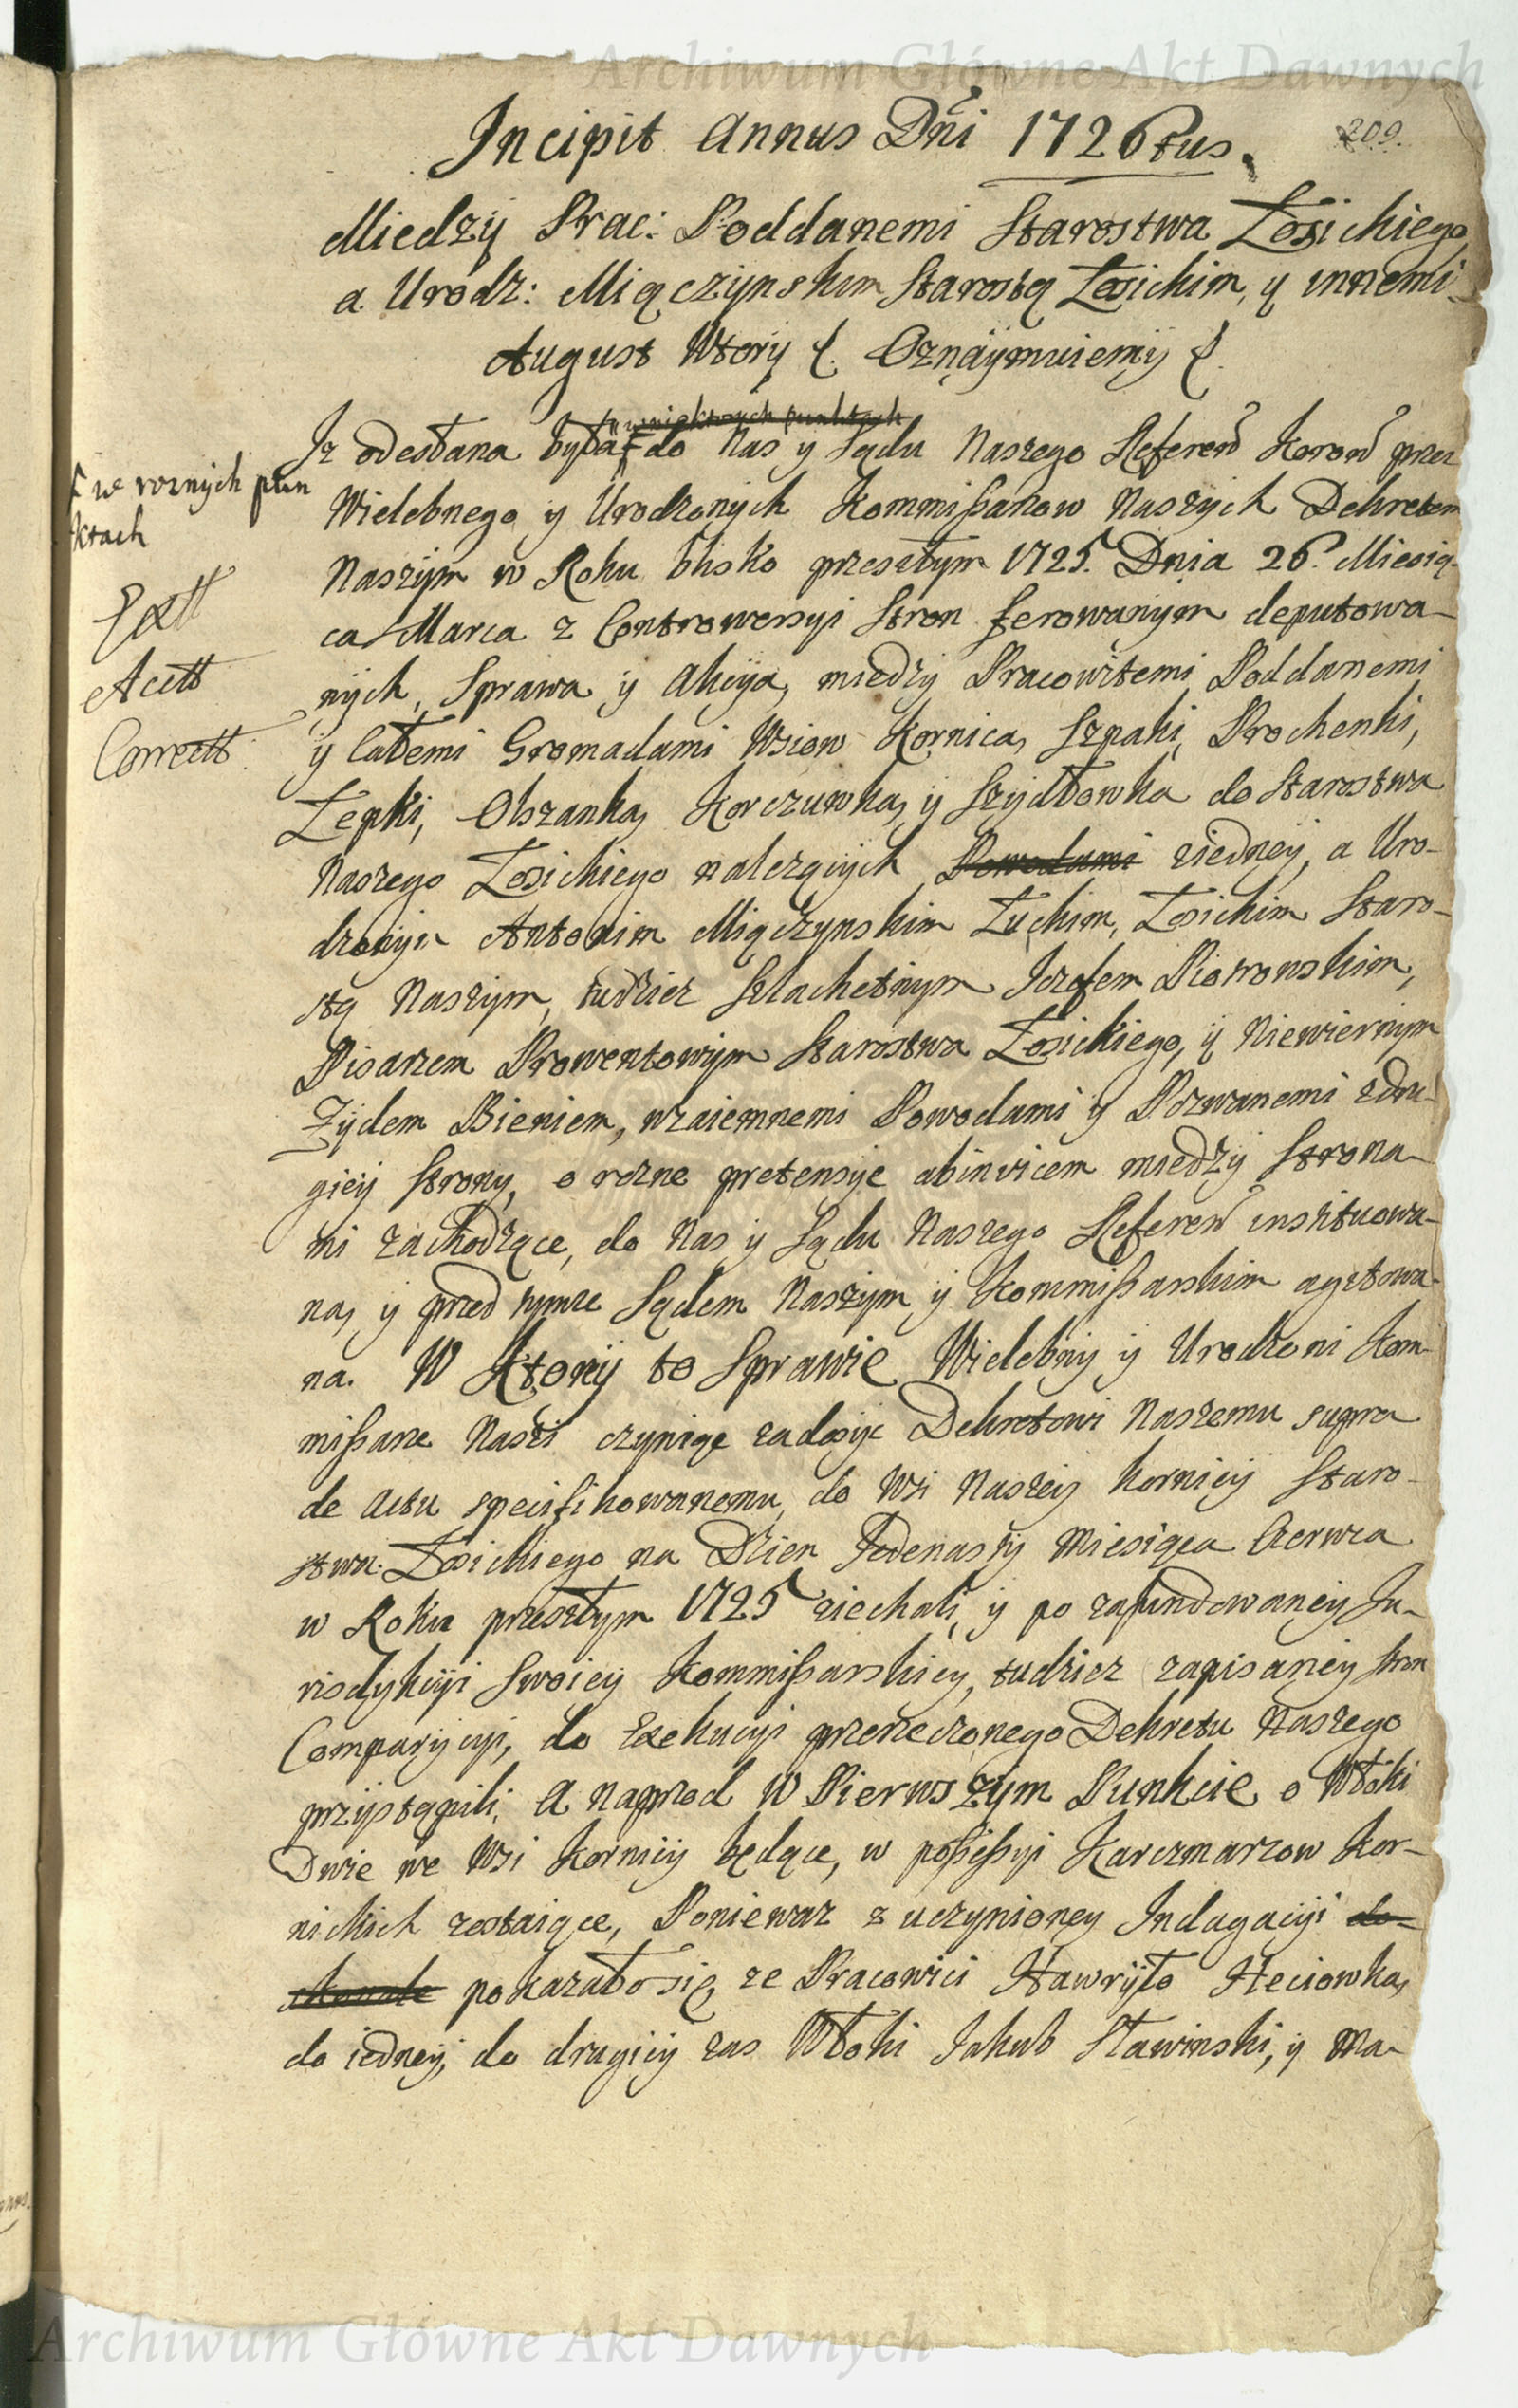 Archiwum Główne Akt Dawnych
Incipit Annus Dñi 1726tus.
209.
Miedzy Prac: Poddanemi Starostwa Łosickiego
a Urodz: Miączynskim Starostą Łosickim, y innemi
August Wtory Oznaymuiemy
w niektorych punktach
Iz odesłana była do Nas y Sądu Naszego Referen Koron przez
w roznych pun
ktach
Wielebnego y Urodzonych Kommißarzow Naszych Dekretem
Naszym w Roku blisko przeszłym 1725. Dnia 26. Miesią-
Extt
ca Marca z Controwersyi Stron ferowanym deputowa-
Acett
nych, Sprawa y Akcya, miedzy Pracowitemi Poddanemi
Correctt
y Całemi Gromadami Wsiow Kornica, Szpaki, Prochenki,
Łepki, Olszanka, Korczuwka, y Szydłowka do Starostwa
Naszego Łosickiego nalezących Powodami ziedney, a Uro-
dzonym Antonim Miączynskim Łuckim, Łosickim Staro-
stą Naszym, tudziez Szlachetnym Jozefem Piotrowskim,
Pisarzem Prowentowym Starostwa Łosickiego, y Niewiernym
Zydem Bieniem, wzaiemnemi Powodami y Pozwanemi zdru-
giey Strony, o rozne pretensye abinvicem miedzy Strona-
mi zachodzące, do Nas y Sądu Naszego Referen instituowa-
na, y przed tymze Sądem Naszym y Kommißarskim agitowa-
na. W Ktory to Sprawie Wielebny y Urodzoni Kom-
mißarze Naszi czyniąc zadosyc Dekretowi Naszemu supra
de actu specifikowanemu, do Wsi Naszey Kornicy Staro-
stwa Łosickiego na Dzien Jedenasty Miesiąca Czerwca
w Roku przeszłym 1725 ziechali, y po zafundowaney Ju-
risdykcyi Swoiey Kommißarskiey, tudziez zapisaney Stron
Comparycyi, do Exekucyi przerzeczonego Dekretu Naszego
przystąpili; A naprzod w Pierwszym Punkcie o Włoki
Dwie we Wsi Kornicy będące, w poßeßyi Karczmarzow Kor-
nickich zostaiące, Poniewaz z uczynioney Indagacyi do-
skonale pokazało się, ze Pracowici Hawryło Heciowka,
do iedney, do drugiey zas Włoki Jakub Sławinski, y Ma-
Archiwum Główne Akt Dawnych